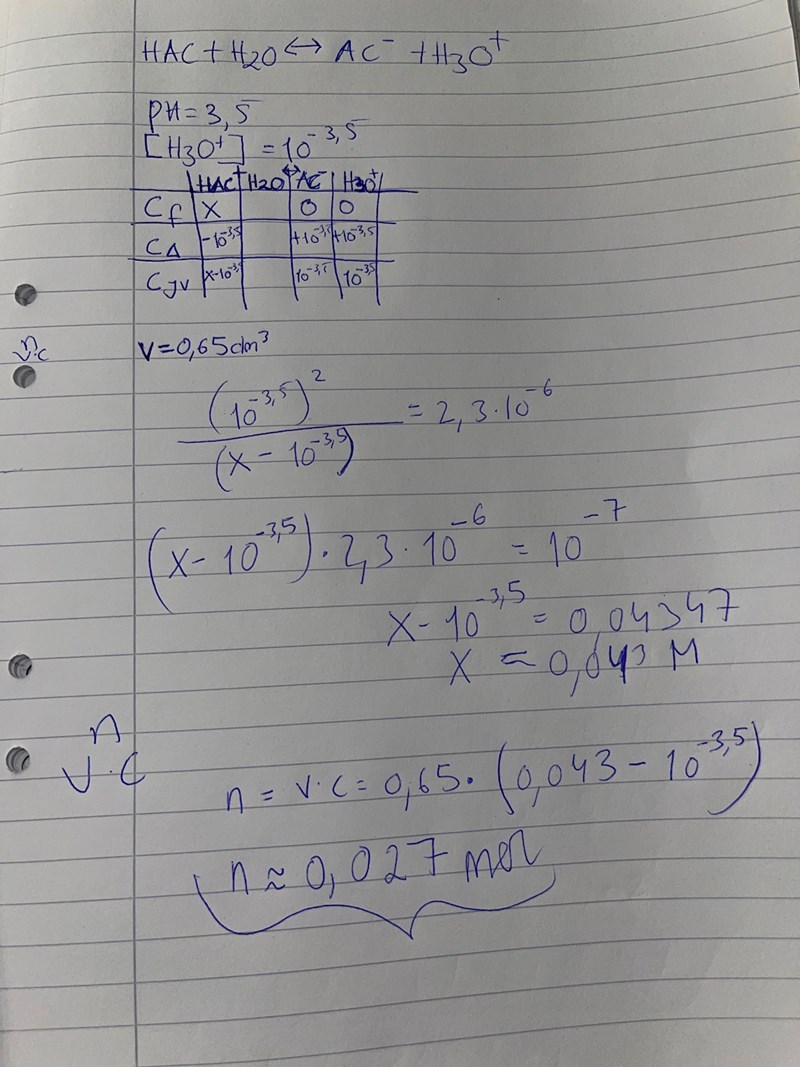 HAC + H2O ↔ AC⁻ + H3O⁺
PH = 3,5
[H3O⁺] = 10^-3,5
HAC + H2O ↔ AC⁻ H3O⁺
Cf X 0 0
CΔ -10^-3,5 +10^-3,5 +10^-3,5
Cjv X-10^-3,5 10^-3,5 10^-3,5
n
V·C
V = 0,65 dm³
(10^-3,5)² / (X - 10^-3,5) = 2,3 · 10^-6
(X - 10^-3,5) · 2,3 · 10^-6 = 10^-7
X - 10^-3,5 = 0,04347
X ≈ 0,043 M
n
V·C
n = V·C = 0,65 · (0,043 - 10^-3,5)
n ≈ 0,027 mol